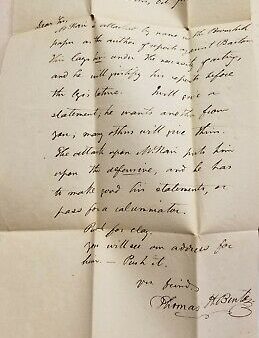 Dear Sir,
McNair is attacked by name in the Brunswick
paper as the author of report against Barton
this copy under the
and he will justify his report before
the Legislature. Will give a
statement, he wants another from
you; many others will give them.
The attack upon McNair puts him
upon the defensive, and he has
to make good his statements, or
pass for a calumniator.
Push for clay.
You will see our address for
him. — Push it.
yr friend,
Thomas H. Benton